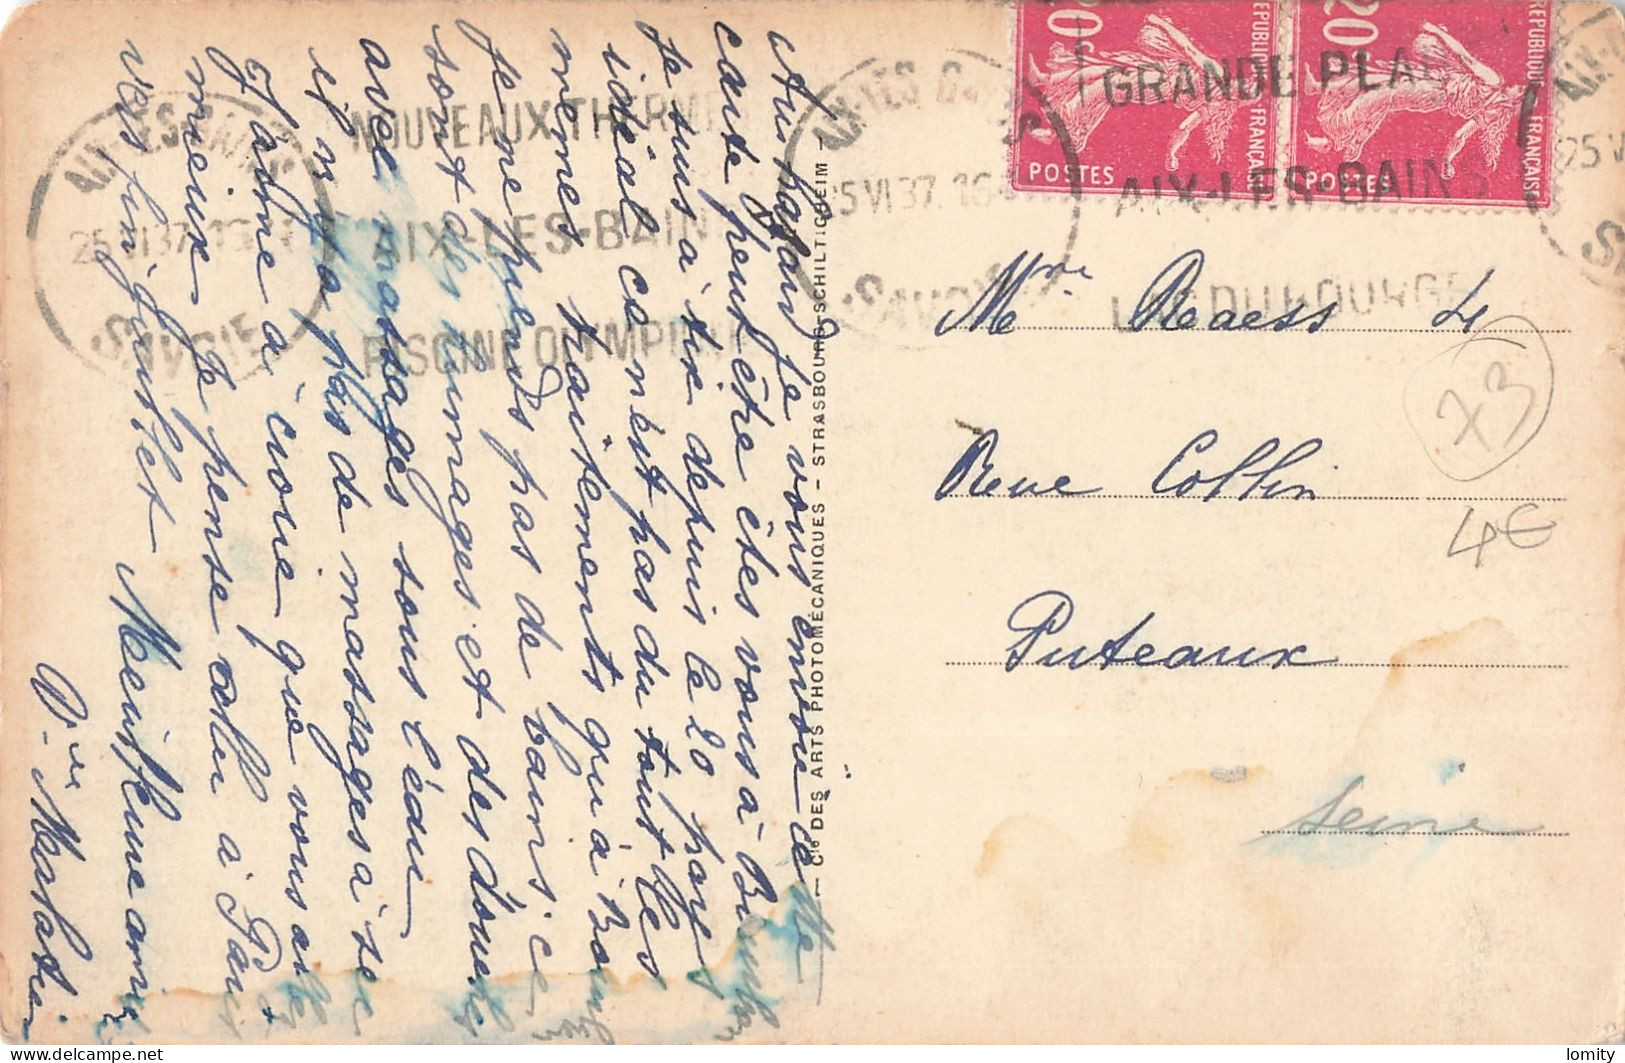 Au hasard je vous envoie cette
carte peut être êtes vous à
Je suis à Aix depuis le 20 pays
idéal ce n'est pas du tout les
mêmes traitements qu'à
je ne prends pas de bains. ce
sont des humages et des douches
avec massages sous l'eau
il n'y a pas de massages à sec
J'aime à croire que vous allez
mieux. Je pense aller à Paris
vers fin juillet Meilleure amitié
NOUVEAUX THERMES
AIX-LES-BAINS
PISCINE OLYMPIENNE
AIX-LES-BAINS
25 VI 37. 16
SAVOIE
AIX-LES-BAINS
25 VI 37. 16
SAVOIE
GRANDE PLAGE
AIX-LES-BAINS
LAC DU BOURGET
AIX-
25 V
20
REPUBLIQUE FRANÇAISE
POSTES
20
REPUBLIQUE FRANÇAISE
POSTES
— Cie DES ARTS PHOTOMÉCANIQUES - STRASBOURG-SCHILTIGHEIM —
Mme Raess
Rue Collin
Puteaux
Seine
x3
4€
lomity